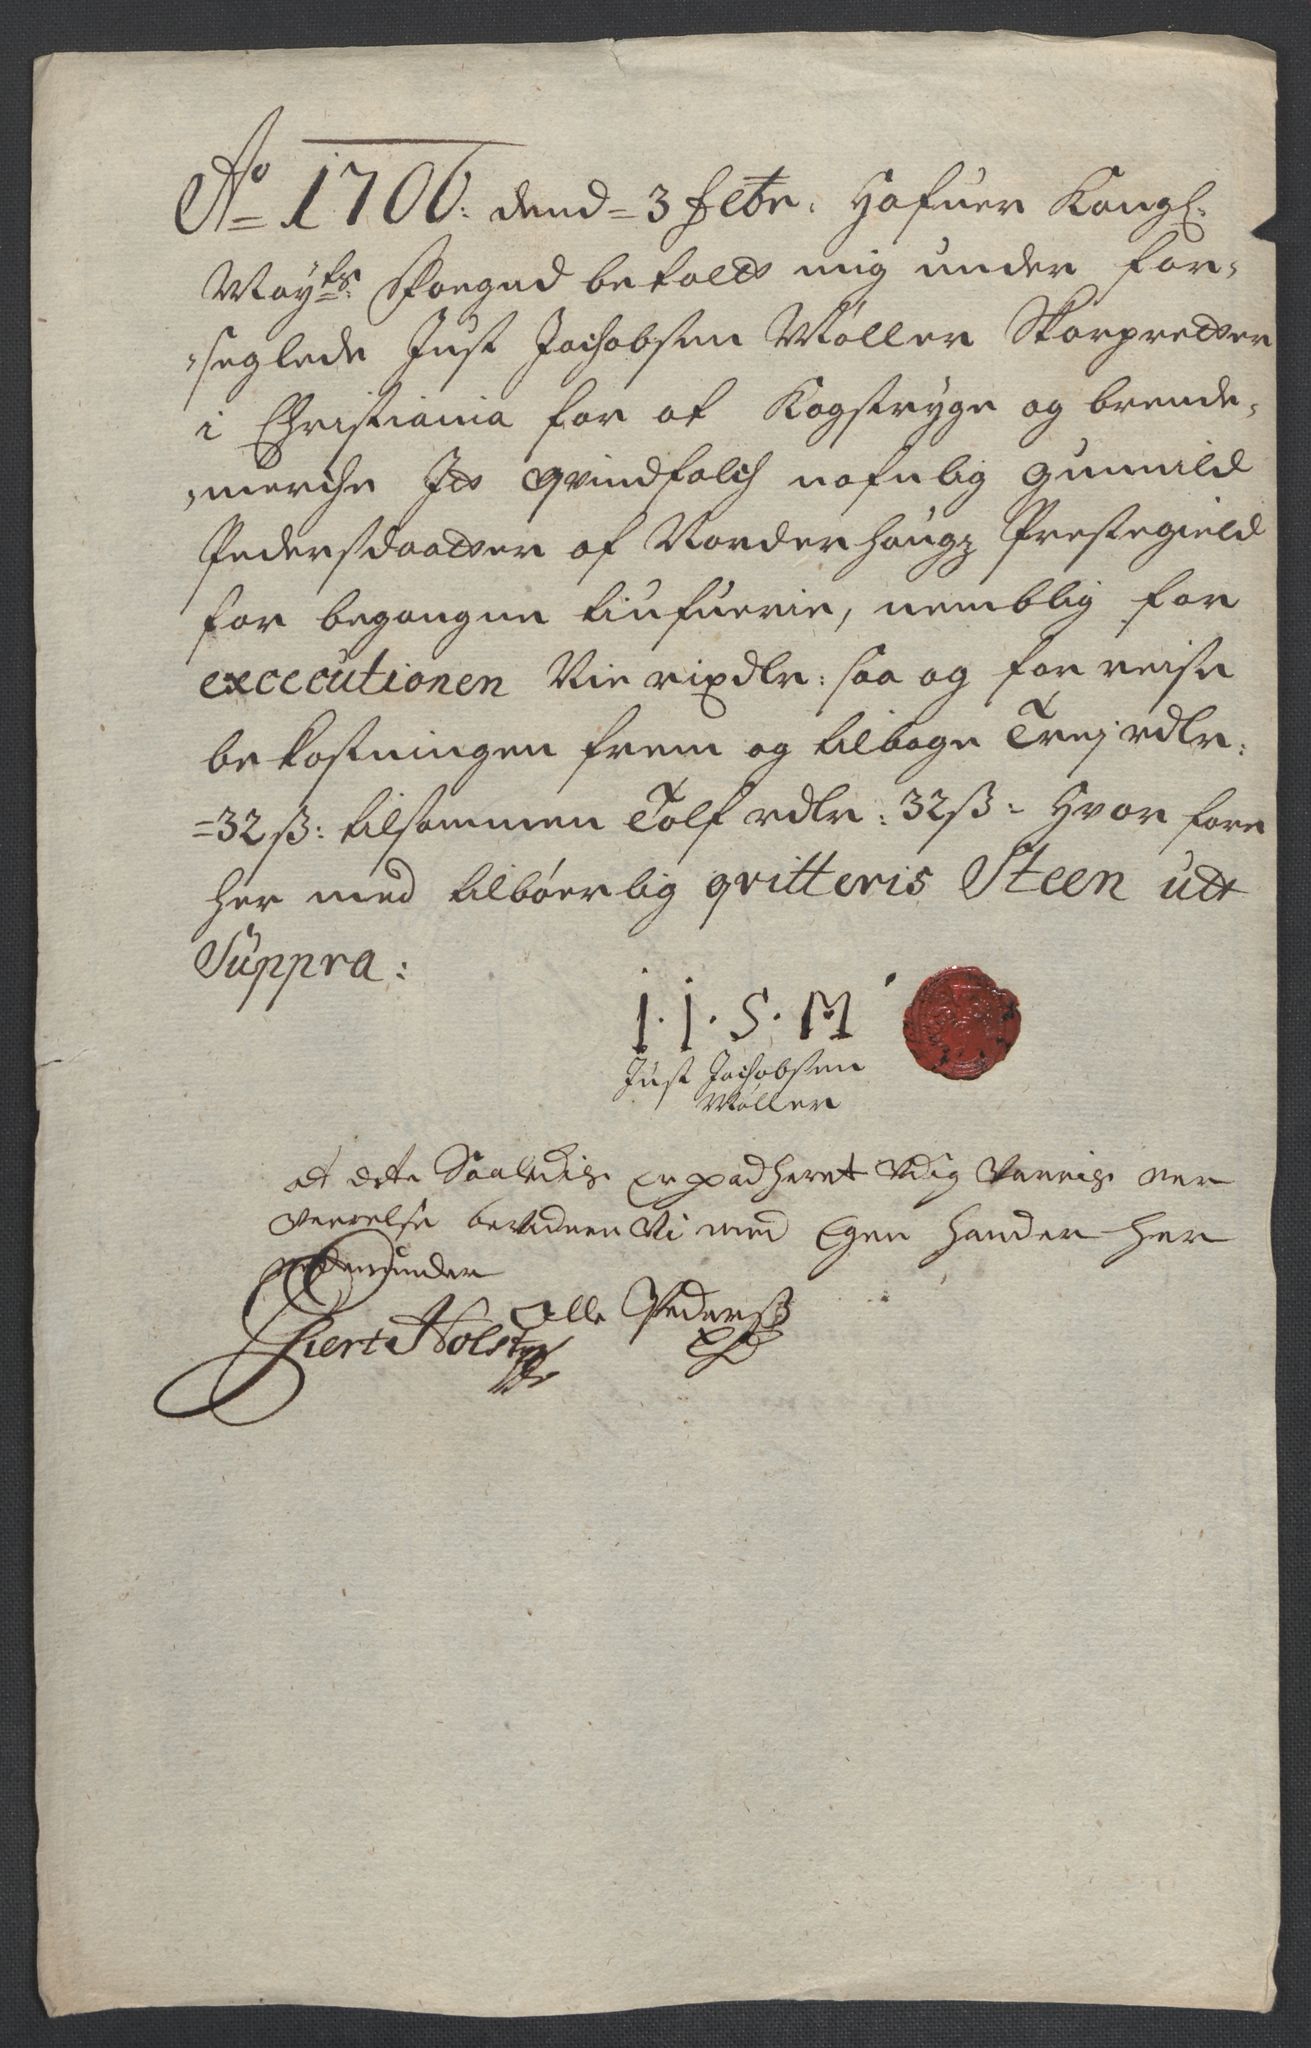 Ao 1706: dend = 3 febr. Hafuer Kongl.
May.ts Foegud betaldt mig under for-
seglede Just Jachobsen Møller Skarpretter
i Christiania for at Kagstryge og brende-
merche It qvindfolch nafnlig Gunnild
Pedersdaatter af Norderhougs Prestegield
for begangne tiufuerie, nemblig for
excecutionen Nie rixdlr: saa og for reise
bekostningen frem og tilbage Trej rdlr:
=32 ß: tilsammen Tolf rdlr: 32 ß - Hvor fore
her med tilbørlig qvitteris Steen utt
Suppra:
I. I. S. M
Just Jachobsen
Møller
at dete Saaledis er passeret udj vorris ner
verelse bevidner vi med Egen hander her
neden under
Giert Holst
Olle Pederß